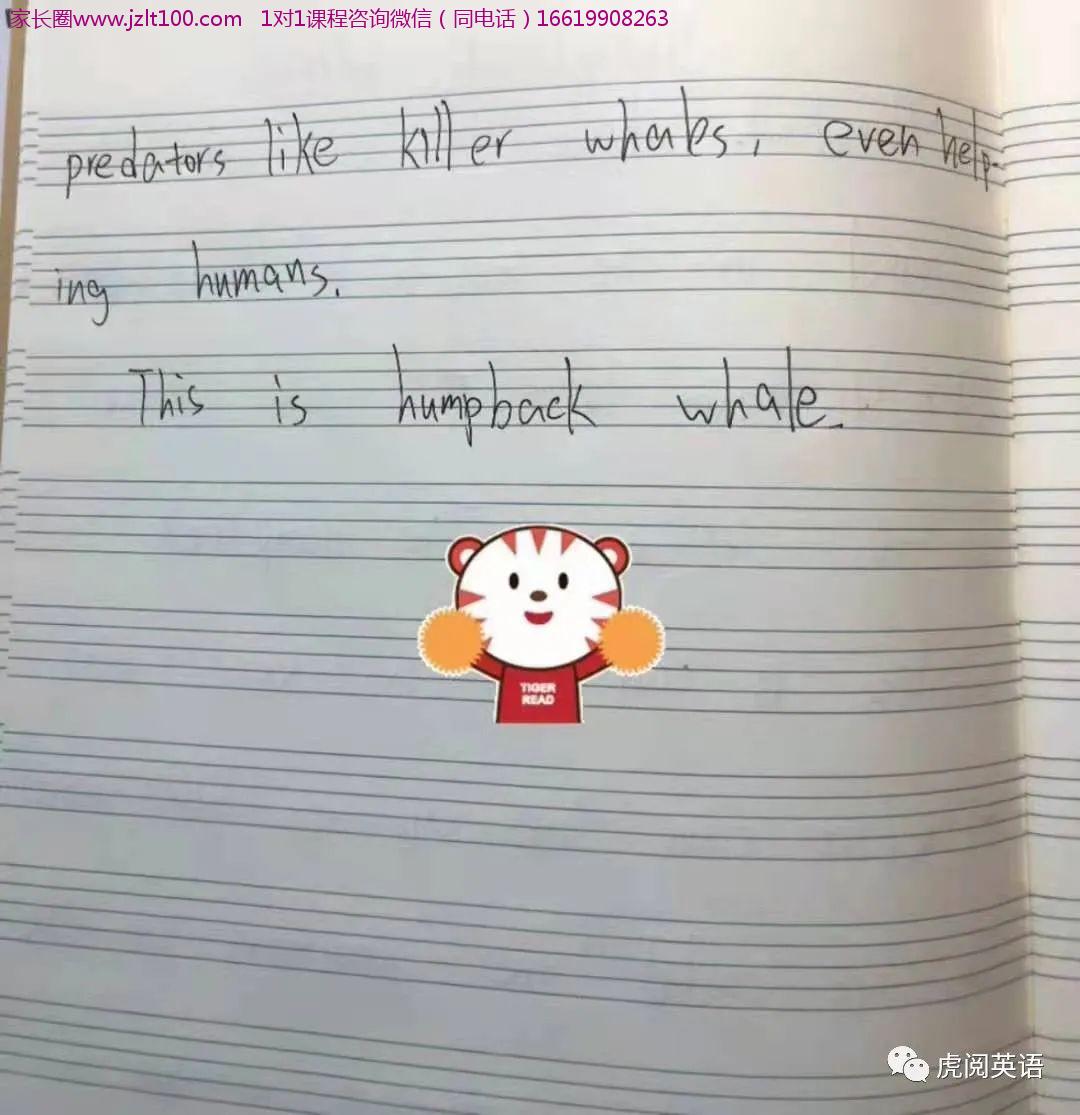 家长圈www.jzlt100.com 1对1课程咨询微信（同电话）16619908263
predators like killer whales, even help-
ing humans.
This is humpback whale.
TIGER
READ
虎阅英语